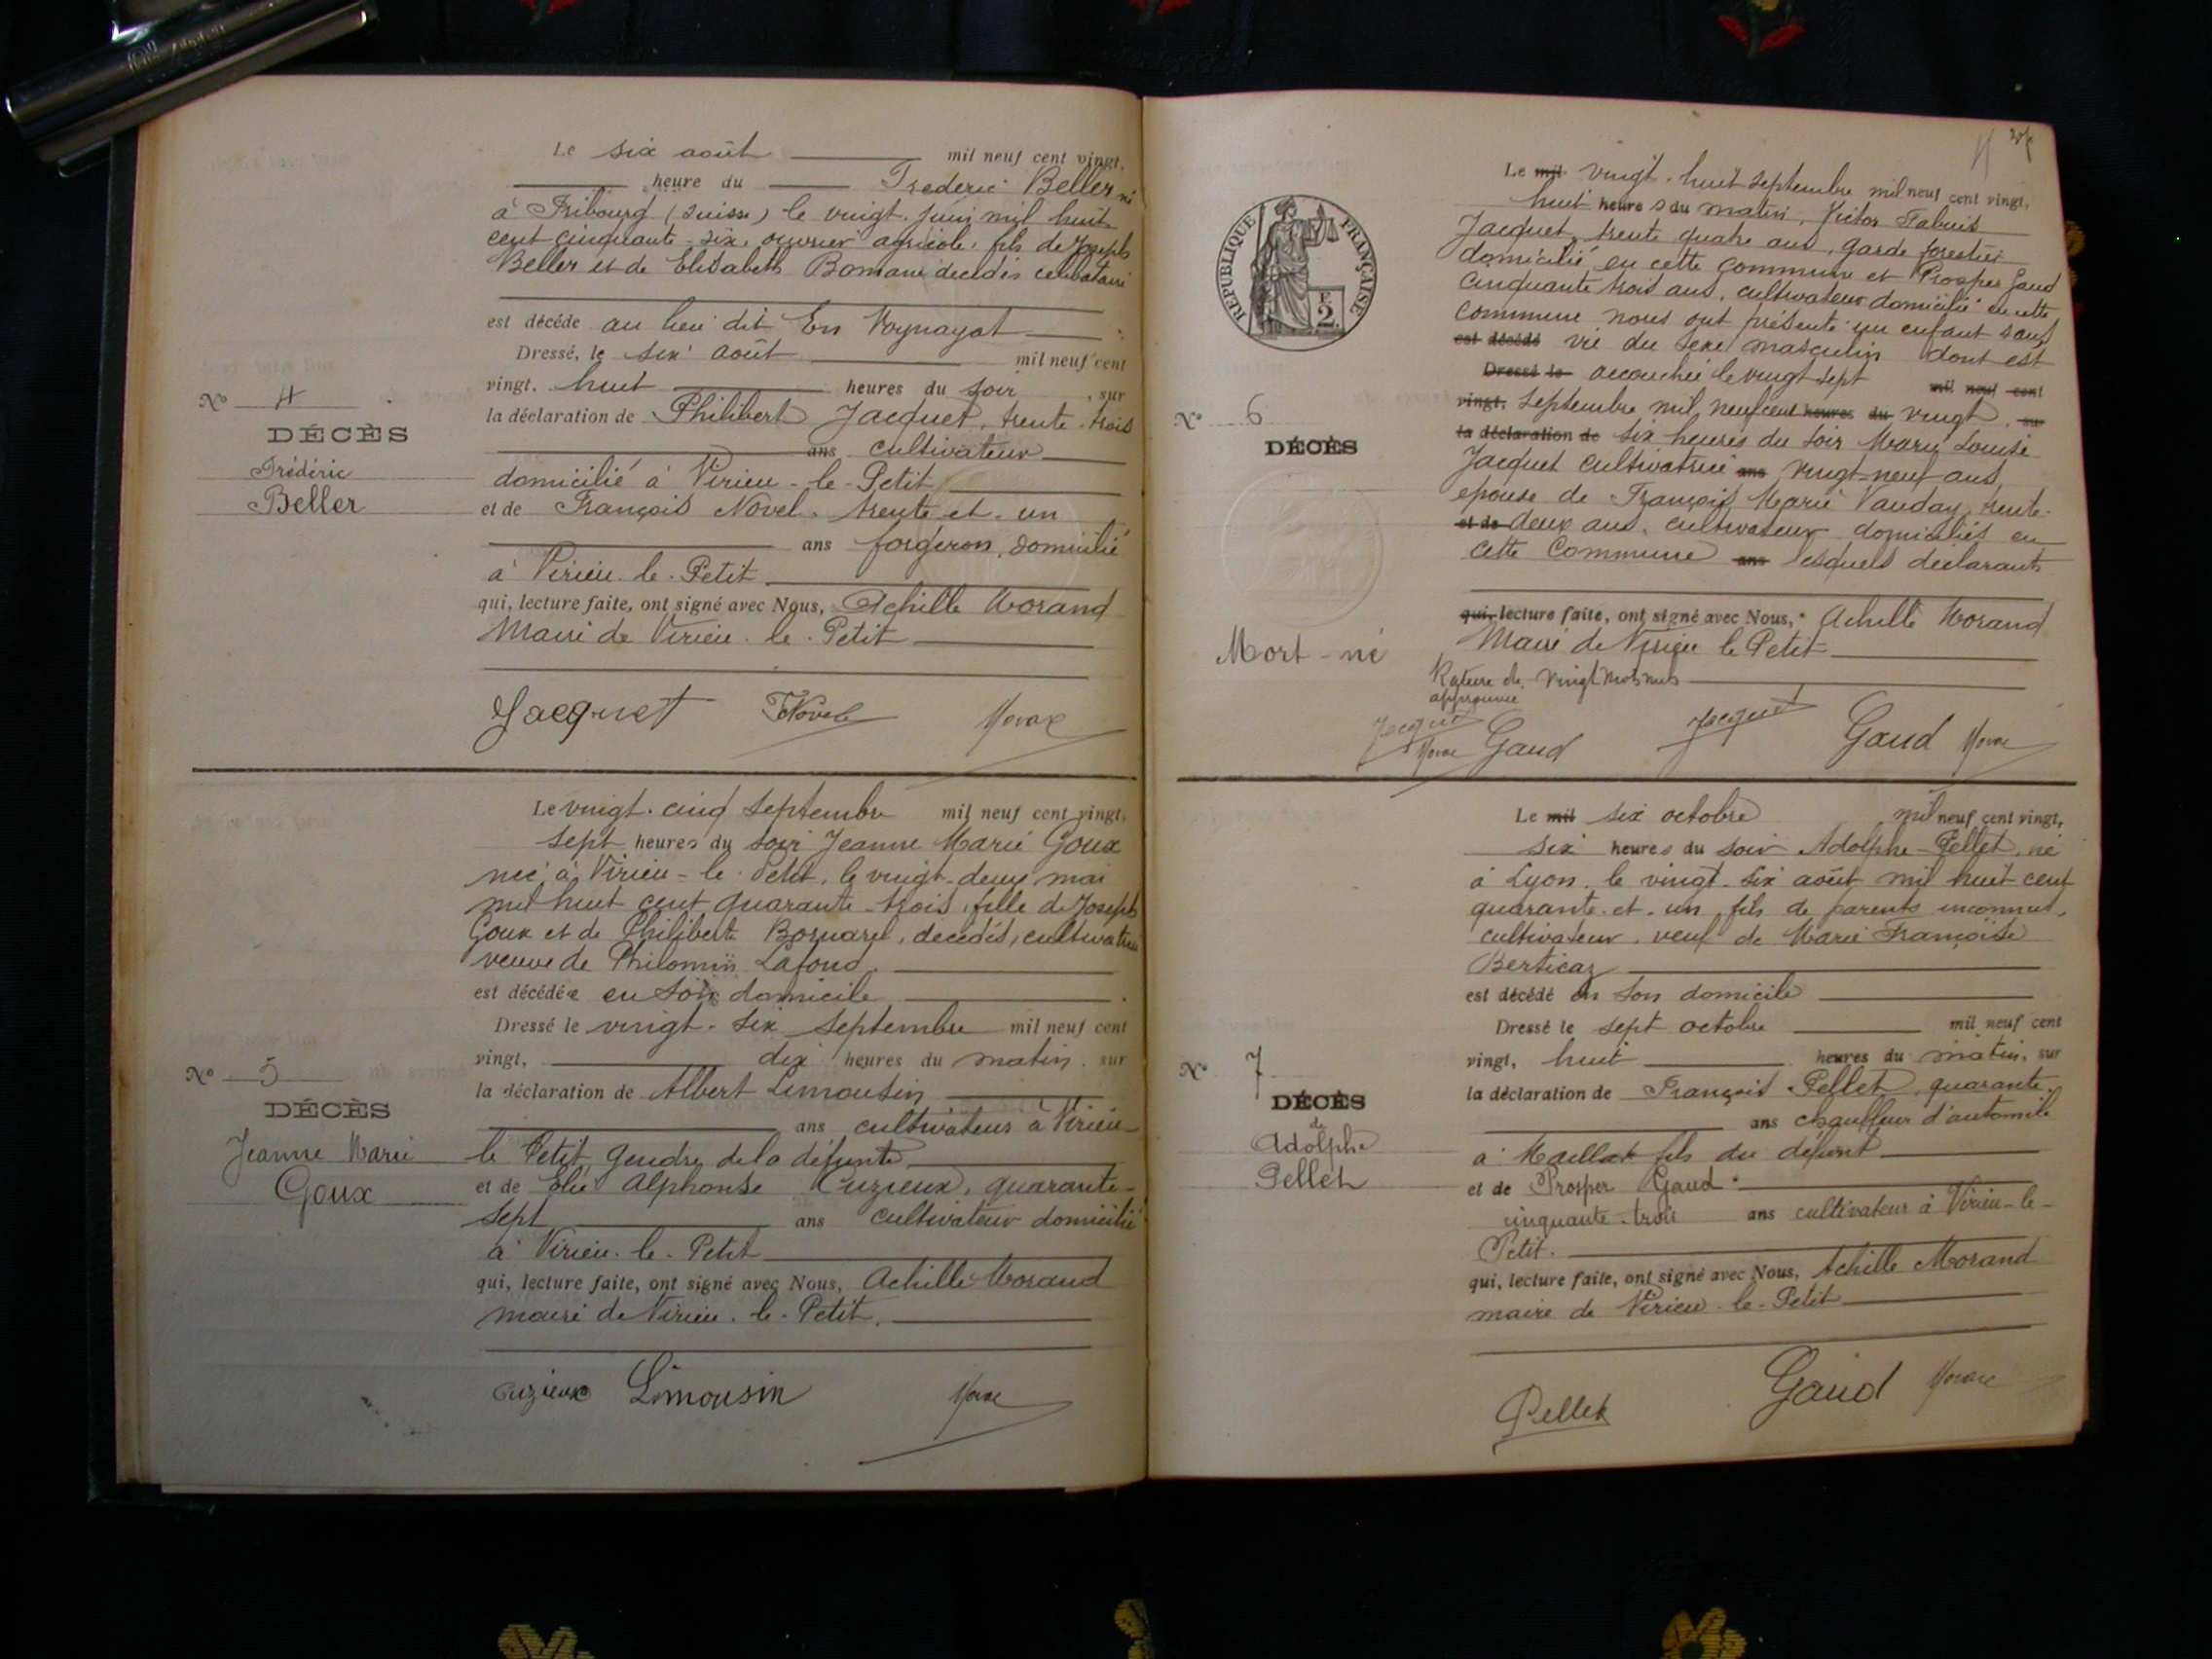 Le six août mil neuf cent vingt,
heure du Frederic Beller né
à Fribourg (Suisse) le vingt. juin mil huit
cent cinquante-six, ouvrier agricole, fils de Joseph
Beller et de Elisabeth décédés célibataire
est décédé au lieu dit En
Dressé, le six août mil neuf cent
vingt, huit heures du soir, sur
la déclaration de Philibert Jacquet, trente-trois
ans cultivateur
domicilié à Virieu-le-Petit
et de François Novel, trente-et-un
ans forgeron, domicilié
à Virieu-le-Petit
qui, lecture faite, ont signé avec Nous, Achille Morand
Maire de Virieu-le-Petit
Jacquet Novel
N° 4
DÉCÈS
Frédéric
Beller
Le vingt-cinq septembre mil neuf cent vingt,
sept heures du soir Jeanne Marie Goux
née à Virieu-le-Petit, le vingt-deux mai
mil huit cent quarante-trois, fille de Joseph
Goux et de Philiberte décédés, cultivatrice
veuve de Lafond.
est décédée en son domicile
Dressé le vingt-six septembre mil neuf cent
vingt, dix heures du matin, sur
la déclaration de Albert Limousin
ans cultivateur à Virieu-
le Petit, gendre de la défunte
et de Elie Alphonse Cuzieux, quarante-
sept ans cultivateur domicilié
à Virieu-le-Petit
qui, lecture faite, ont signé avec Nous, Achille Morand
maire de Virieu-le-Petit.
Cuzieux Limousin
N° 5
DÉCÈS
Jeanne Marie
Goux
RÉPUBLIQUE FRANÇAISE
F.
2
Le mil vingt-huit septembre mil neuf cent vingt,
huit heures du matin, Victor
Jacquet, trente quatre ans, garde forestier
domicilié en cette commune et Prosper Gaud
cinquante trois ans, cultivateur domicilié en cette
commune nous ont présenté un enfant sans
est décédé vie du sexe masculin dont est
Dressé le accouchée le vingt sept mil neuf cent
vingt, septembre mil neuf cent heures du vingt, sur
la déclaration de six heures du soir Marie Louise
Jacquet cultivatrice ans vingt-neuf ans,
épouse de François Marie Vauday, trente-
et de deux ans, cultivateur domiciliés en
cette commune ans lesquels déclarants
qui, lecture faite, ont signé avec Nous, Achille Morand
Maire de Virieu le Petit
Rature de vingt mots nuls
approuvée
Jacquet Gaud Jacquet Gaud
N° 6
DÉCÈS
Mort-né
Le mil six octobre mil neuf cent vingt,
six heures du soir Adolphe Pellet, né
à Lyon, le vingt-six août mil huit cent
quarante-et-un, fils de parents inconnus,
cultivateur, veuf de Marie Françoise
Berticaz
est décédé en son domicile
Dressé le sept octobre mil neuf cent
vingt, huit heures du matin, sur
la déclaration de François Pellet, quarante
ans chauffeur d'automile
à Maillat fils du défunt
et de Prosper Gaud
cinquante-trois ans cultivateur à Virieu-le-
Petit.
qui, lecture faite, ont signé avec Nous, Achille Morand
maire de Virieu-le-Petit
Pellet Gaud
N° 7
DÉCÈS
de
Adolphe
Pellet